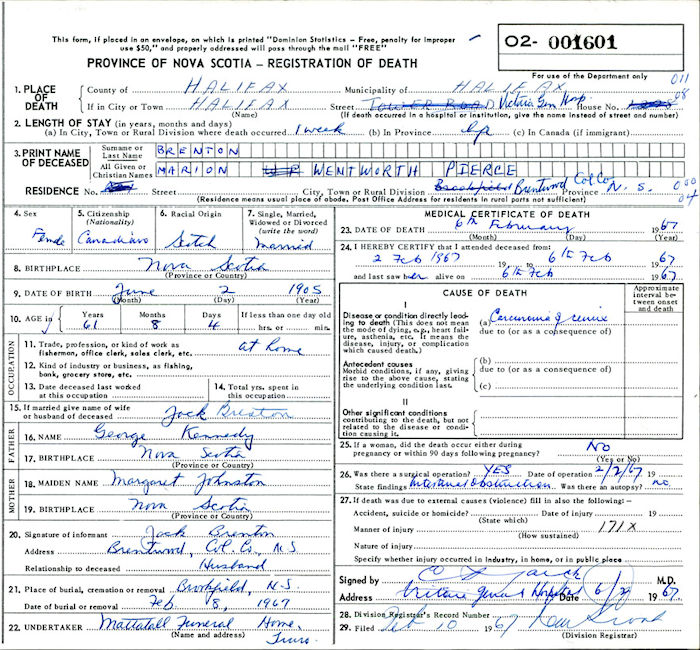 This form, if placed in an envelope, on which is printed "Dominion Statistics - Free, penalty for improper
use $50," and properly addressed will pass through the mail "FREE"
O2- 001601
PROVINCE OF NOVA SCOTIA - REGISTRATION OF DEATH
For use of the Department only
011
08
1. PLACE OF DEATH
County of HALIFAX Municipality of HALIFAX
If in City or Town HALIFAX Street TOWER ROAD Victoria Gen Hosp. House No.
(Name) (If death occurred in a hospital or institution, give the name instead of street and number)
2. LENGTH OF STAY (in years, months and days)
(a) In City, Town or Rural Division where death occurred 1 week (b) In Province (c) In Canada (if immigrant)
3. PRINT NAME OF DECEASED
Surname or Last Name BRENTON
All Given or Christian Names MARION WENTWORTH PIERCE
RESIDENCE No. Street City, Town or Rural Division Brookfield Brentwood Col. Co. N. S.
(Residence means usual place of abode. Post Office Address for residents in rural parts not sufficient)
4. Sex
5. Citizenship (Nationality)
Canadian
6. Racial Origin
Scotch
7. Single, Married, Widowed or Divorced (write the word)
Married
8. BIRTHPLACE Nova Scotia
(Province or Country)
9. DATE OF BIRTH June 2 1905
(Month) (Day) (Year)
10. AGE in Years Months Days If less than one day
61 8 4 hrs. or min.
OCCUPATION
11. Trade, profession, or kind of work as fisherman, office clerk, sales clerk, etc. at home
12. Kind of industry or business, as fishing, bank, grocery store, etc.
13. Date deceased last worked at this occupation
14. Total yrs. spent in this occupation
15. If married give name of wife or husband of deceased Jack Brenton
FATHER
16. NAME George Kennedy
17. BIRTHPLACE Nova Scotia
(Province or Country)
MOTHER
18. MAIDEN NAME Margaret Johnston
19. BIRTHPLACE Nova Scotia
(Province or Country)
20. Signature of informant Jack Brenton
Address Brentwood, Col. Co., N.S
Relationship to deceased Husband
21. Place of burial, cremation or removal Brookfield, N.S.
Date of burial or removal Feb. 8, 1967
22. UNDERTAKER Mattatall Funeral Home,
(Name and address) Truro.
MEDICAL CERTIFICATE OF DEATH
23. DATE OF DEATH 6th February 1967
(Month) (Day) (Year)
24. I HEREBY CERTIFY that I attended deceased from:
2 Feb 1967 19 to 6th Feb 1967
and last saw her alive on 6th Feb 1967
CAUSE OF DEATH
Approximate interval between onset and death
I
Disease or condition directly leading to death (This does not mean the mode of dying, e.g., heart failure, asthenia, etc. It means the disease, injury, or complication which caused death.)
(a) Carcinoma of cervix
due to (or as a consequence of)
Antecedent causes
Morbid conditions, if any, giving rise to the above cause, stating the underlying condition last.
(b)
due to (or as a consequence of)
(c)
II
Other significant conditions contributing to the death, but not related to the disease or condition causing it.
25. If a woman, did the death occur either during pregnancy or within 90 days following pregnancy? NO
(Yes or No)
26. Was there a surgical operation? YES Date of operation 2/2/67 19
State findings obstruction Was there an autopsy? no
27. If death was due to external causes (violence) fill in also the following-
Accident, suicide or homicide? Date of injury 19
(State which)
Manner of injury 171X
(How sustained)
Nature of injury
Specify whether injury occurred in industry, in home, or in public place
Signed by M.D.
Address Victoria General Hospital Date 6/2/ 1967
28. Division Registrar's Record Number
29. Filed Feb 10 1967
(Division Registrar)